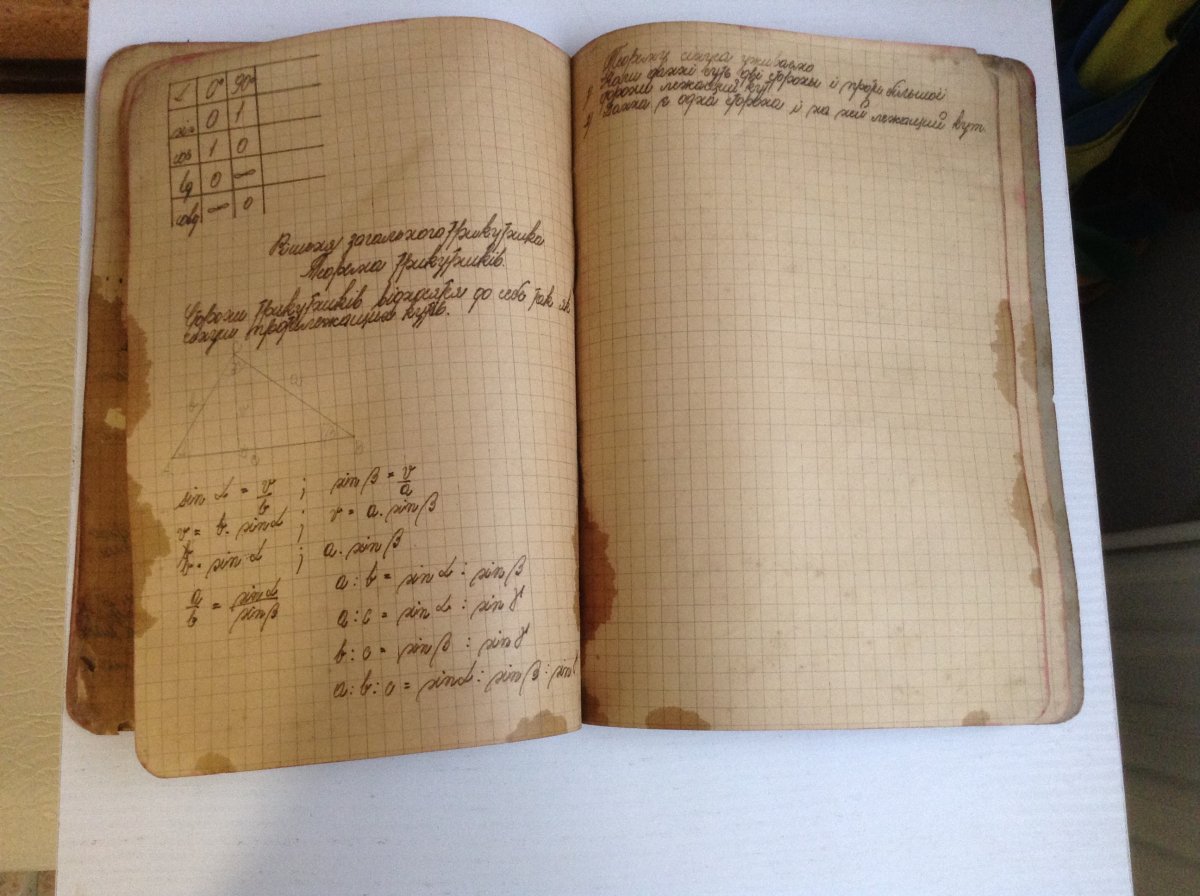 ∠ 0° 90°
sin 0 1
cos 1 0
tg 0 ∞
cotg ∞ 0
загального трикутника
Теорема трикутників.
Сторони трикутників відносяться до себе так як
синуси протилежащих кутів.
sin α = v/b ; sin β = v/a
v = b. sin α ; v = a. sin β
b. sin α ; a. sin β
a/b = sin α/sin β
a : b = sin α : sin β
a : c = sin α : sin γ
b : c = sin β : sin γ
a : b : c = sin α : sin β : sin
Теорему синуса уживаємо
Коли дані суть дві сторони і проти більшої
сторони лежащий кут
2) Дана є одна сторона й на ней лежащий кут.